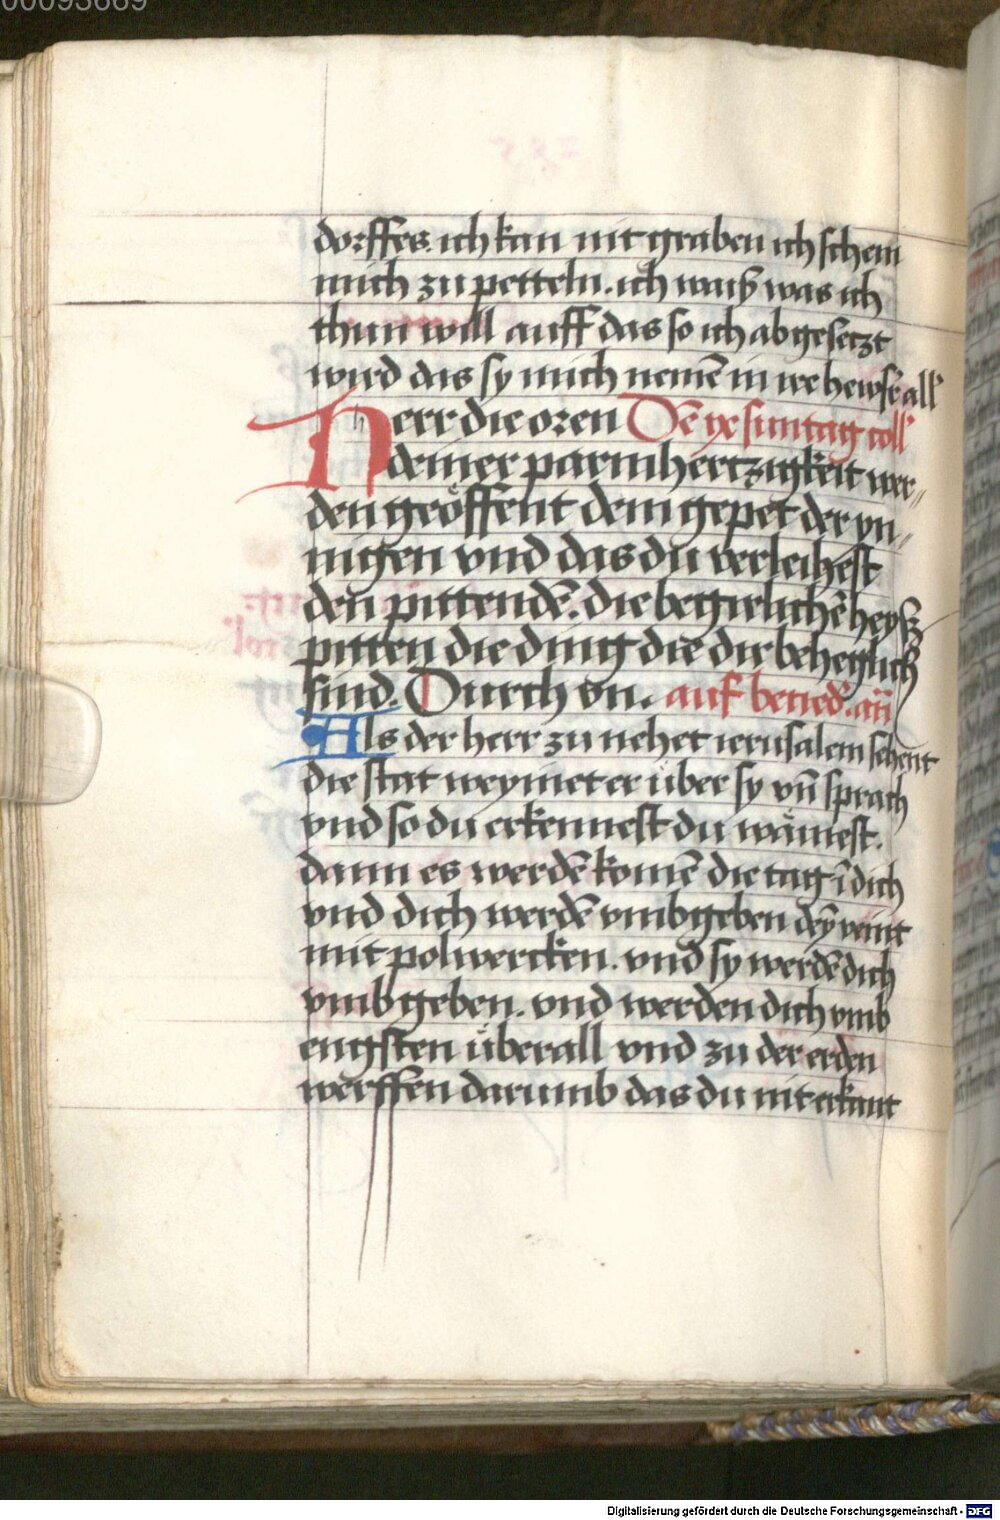 00093669
dorffes. ich kan nit graben ich schem
mich zu petteln. ich waiß was ich
thun will auff das so ich abgesetzt
wird das sy mich nemē in ire hewser all
Herr die oren Dē ix suntag coll
deiner parmhertzigkeit wer„
den geöffent dem gepet der yn„
nigen vnd das du verleihest
den pittendē. die begirlichē heyß
pitten die ding die dir beheglich
sind. Durch vn. auf bened. an̄
Als der herr zu nehet ierusalem sehent
die stat weymet er über sy vn̄ sprach
vnd so du erkennest du wäinest.
dann es werdē komē die tag ī dich
vnd dich werdē vmbgeben deȳ veint
mit polwercken. vnd sy werdē dich
vmbgeben. vnd werden dich vmb
engsten überall vnd zu der erden
werffen darumb das du nit erkant
Digitalisierung gefördert durch die Deutsche Forschungsgemeinschaft - DFG